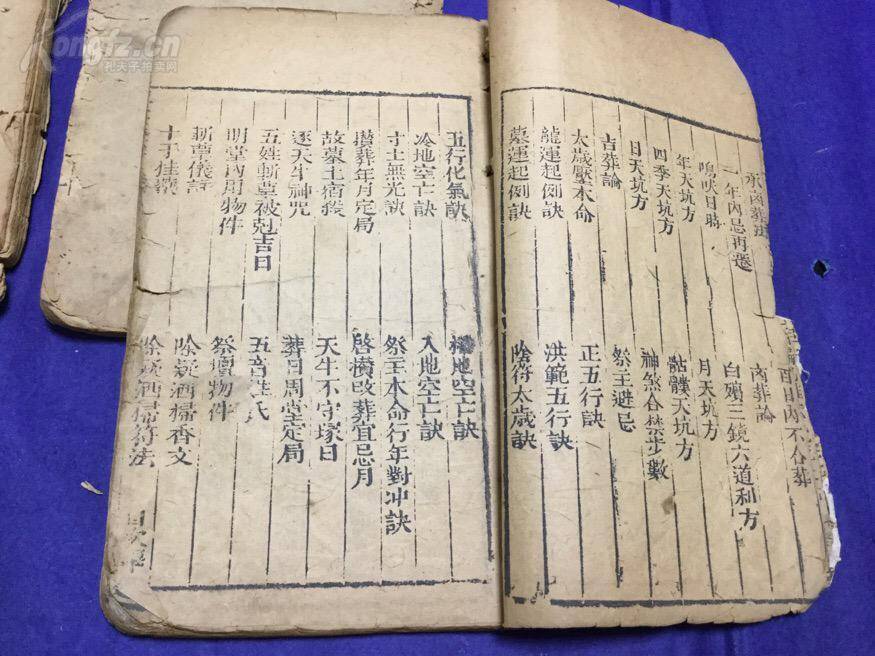 凶葬法
日內不合葬
一年內忌再遷
葬論
鳴吠日時
白殯三鏡六道利方
年天坑方
月天坑方
四季天坑方
骷髏天坑方
日天坑方
神煞合禁步數
吉葬論
祭主避忌
太歲壓本命
正五行訣
龍運起例訣
洪範五行訣
墓運起例訣
陰符太歲訣
五行化氣訣
地空亡訣
冷地空亡訣
入地空亡訣
寸土無光訣
祭主本命行年對冲訣
攢葬年月定局
啓攢改葬宜忌月
故墓土宿
天牛不守塚日
逐天牛神咒
葬日周堂定局
五姓斬草被剋吉日
五音姓氏
明堂內用物件
祭壇物件
斬草儀
除靈洒掃香文
十干
除靈洒掃符法
目次畢
kongfz.cn
孔夫子拍卖网